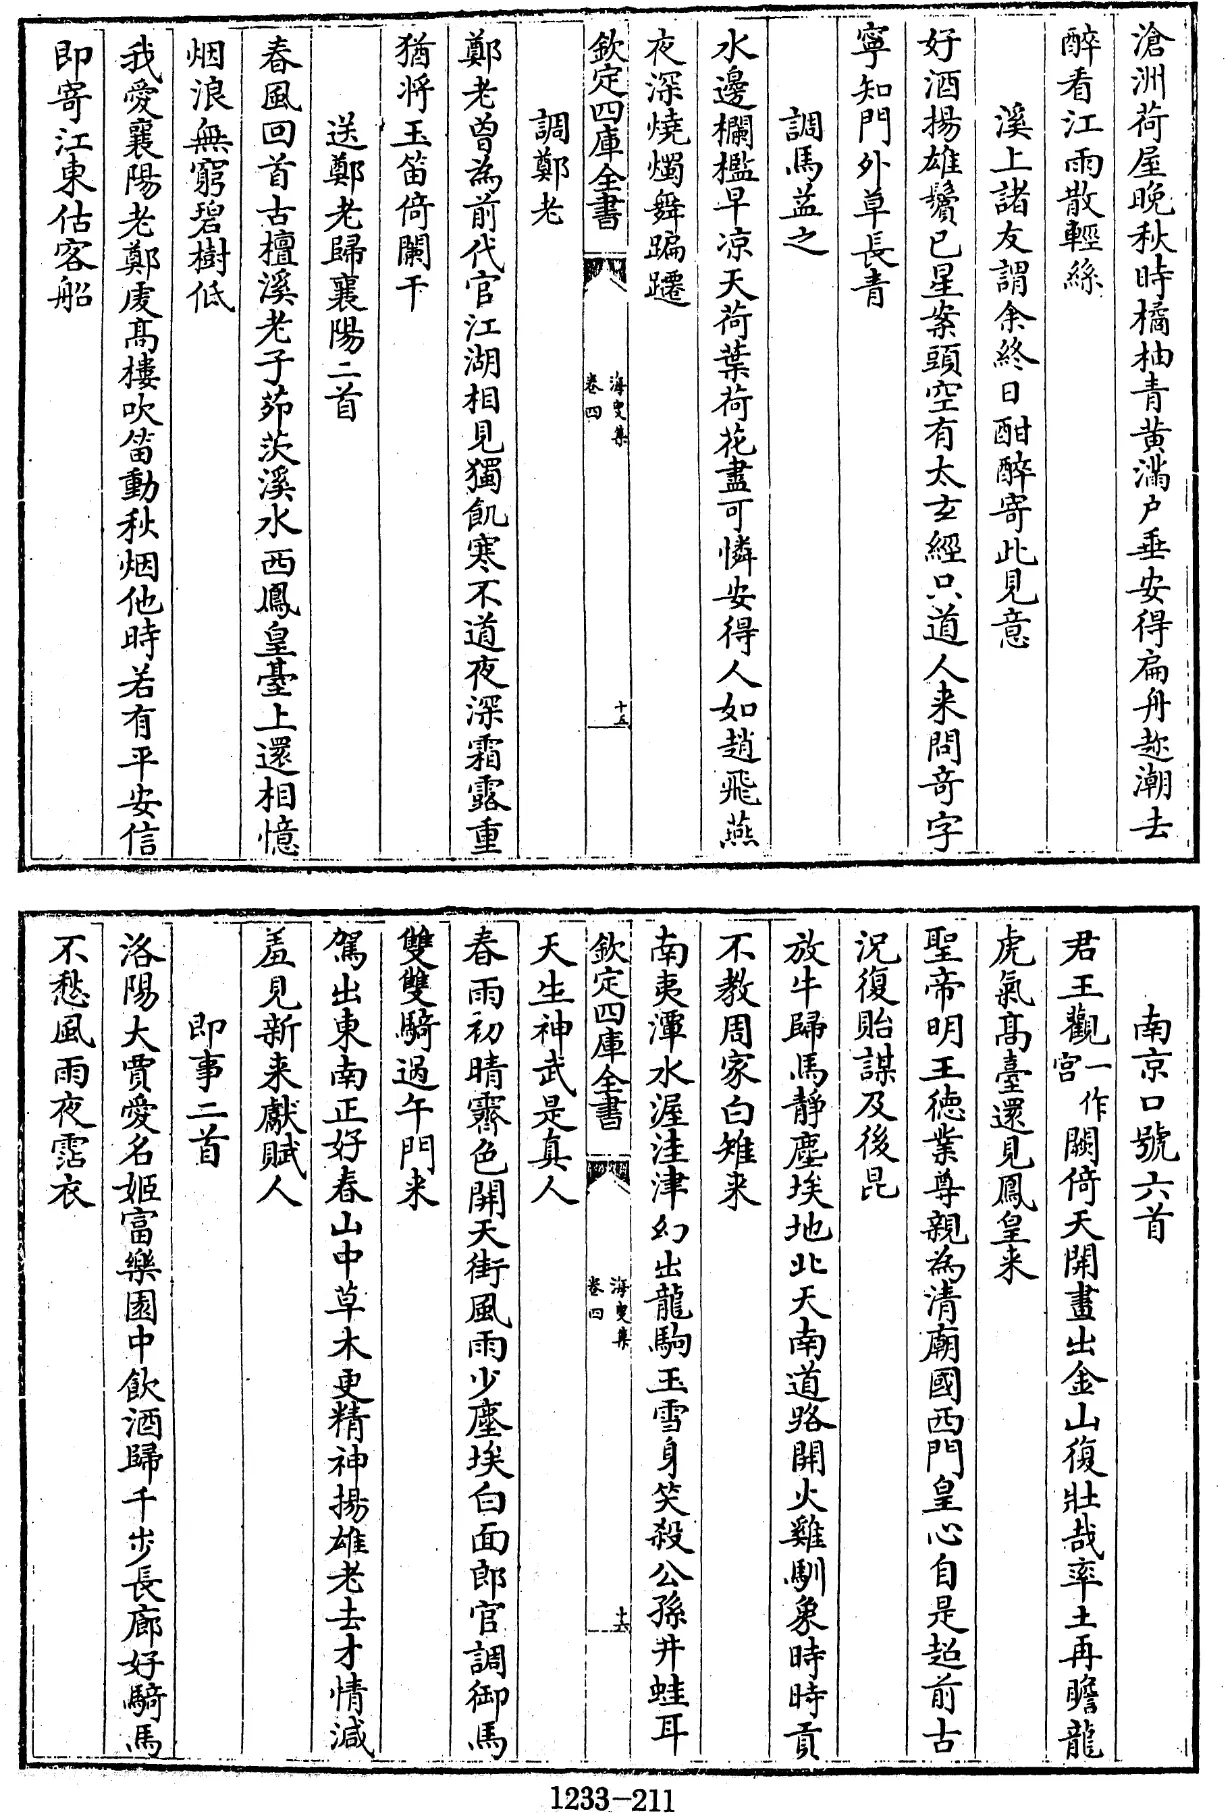 滄洲荷屋晚秋時橘柚青黄滿户垂安得扁舟趂潮去
醉看江雨散輕絲
溪上諸友謂余終日酣醉寄此見意
好酒揚雄鬢已星案頭空有太玄經只道人来問奇字
寧知門外草長青
調馬益之
水邊欄檻早凉天荷葉荷花盡可憐安得人如趙飛燕
夜深燒燭舞蹁躚
欽定四庫全書
海叟集
卷四
十五
調鄭老
鄭老曽為前代官江湖相見獨飢寒不道夜深霜露重
猶將玉笛倚闌干
送鄭老歸襄陽二首
春風回首古檀溪老子茆茨溪水西鳳皇臺上還相憶
烟浪無窮碧樹低
我愛襄陽老鄭䖍髙樓吹笛動秋烟他時若有平安信
即寄江東估客船
南京口號六首
君王觀一作宫闕倚天開畫出金山復壯哉率土再瞻龍
虎氣髙臺還見鳳皇来
聖帝明王徳業尊親為清廟國西門皇心自是超前古
況復貽謀及後昆
放牛歸馬靜塵埃地北天南道路開火雞馴象時時貢
不教周家白雉来
南夷潭水渥洼津幻出龍駒玉雪身笑殺公孫井蛙耳
欽定四庫全書
海叟集
卷四
十六
天生神武是真人
春雨初晴霽色開天街風雨少塵埃白面郎官調御馬
雙雙騎過午門来
駕出東南正好春山中草木更精神揚雄老去才情減
羞見新来獻賦人
即事二首
洛陽大賈愛名姬富樂園中飲酒歸千步長廊好騎馬
不愁風雨夜霑衣
1233-211